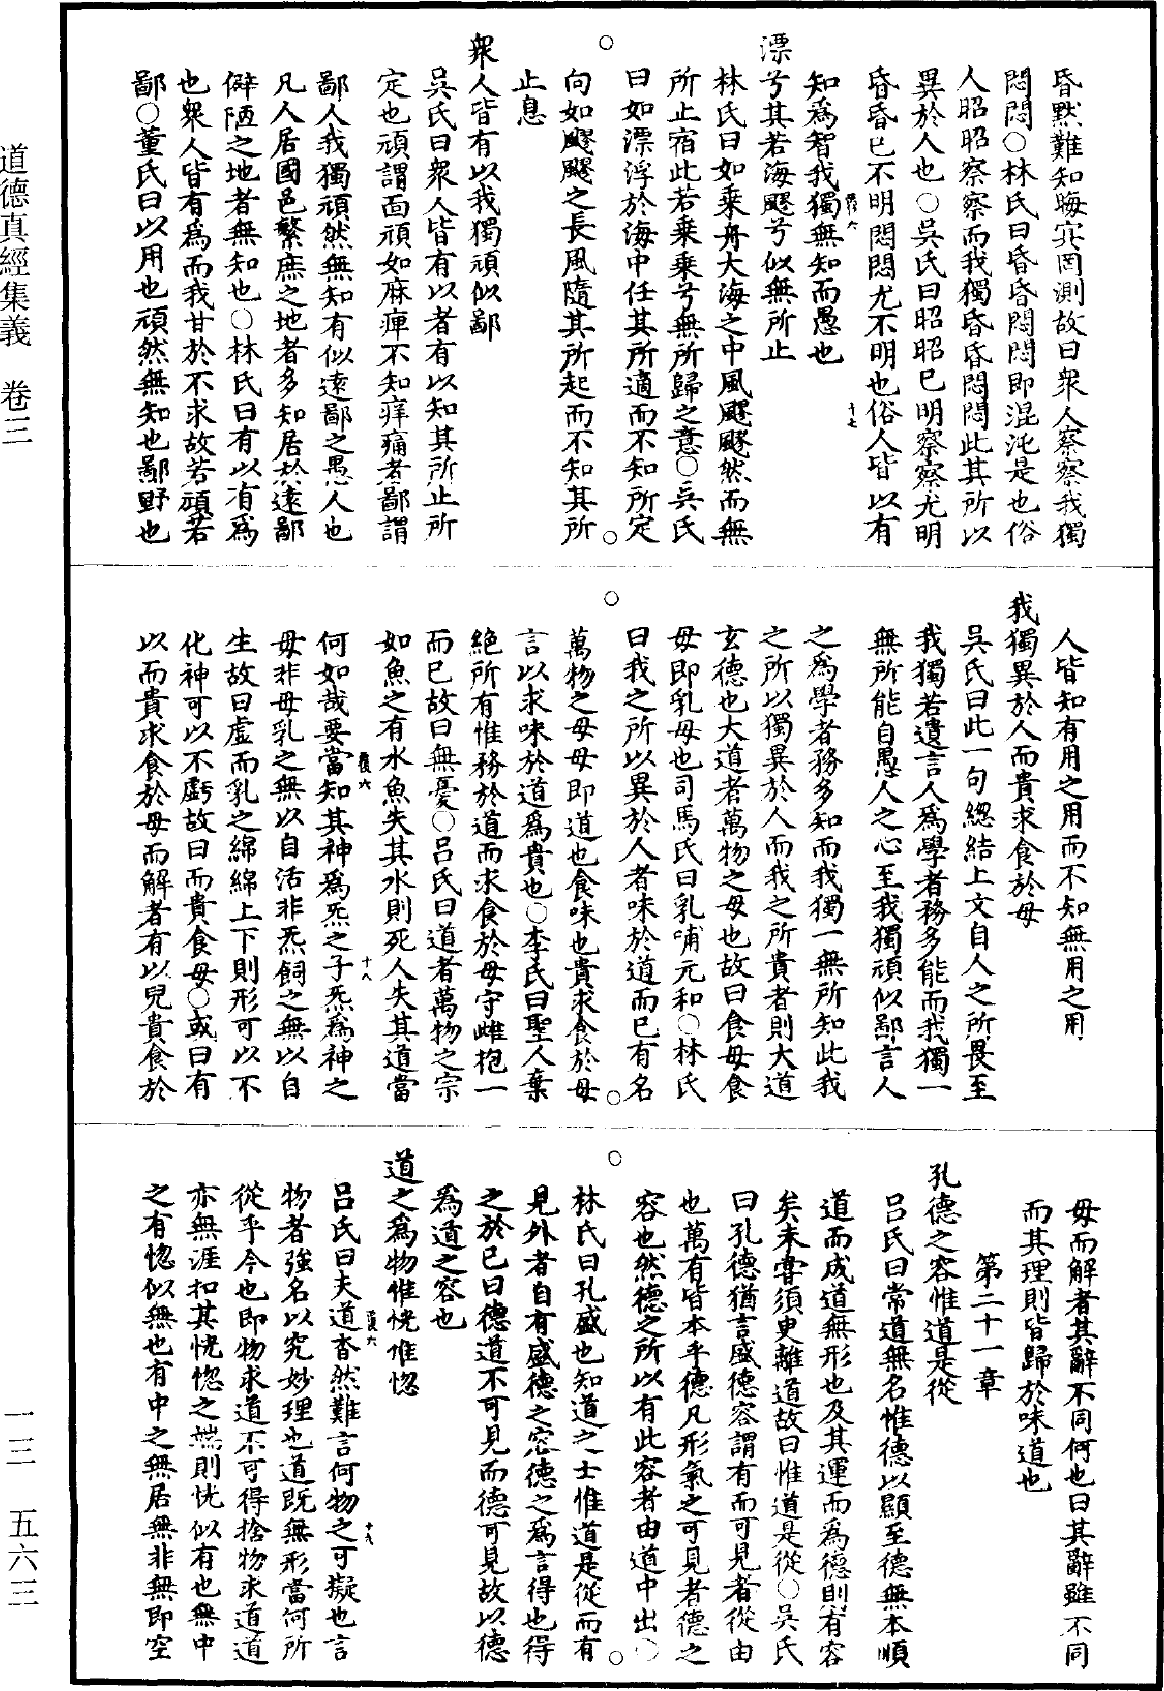 昏默難知晦宾罔測故曰衆人察察我獨
悶悶○林氏曰昏昏悶悶即混沌是也俗
人昭昭察察而我獨昏昏悶悶此其所以
異於人也○吳氏曰昭昭已明察察尤明
昏昏已不明悶悶尤不明也俗人皆以有
知爲智我獨無知而愚也
漂兮其若海飂兮似無所止
林氏曰如乗舟大海之中風飂飂然而無
所止宿此若乗乗兮無所歸之意○吳氏
曰如漂浮於海中任其所適而不知所定
向如飂飂之長風隨其所起而不知其所
止息
衆人皆有以我獨頑似鄙
吳氏曰衆人皆有以者有以知其所止所
定也頑謂靣頑如麻痺不知痒痛者鄙謂
鄙人我獨頑然無知有似遠鄙之愚人也
凡人居國邑繁庶之地者多知居於遠鄙
僻陋之地者無知也○林氏曰有以有爲
也衆人皆有爲而我甘於不求故若頑若
鄙○董氏曰以用也頑然無知也鄙野也
人皆知有用之用而不知無用之用
我獨異於人而貴求食於母
吳氏曰此一句緫結上文自人之所畏至
我獨若遺言人爲學者務多能而我獨一
無所能自愚人之心至我獨頑似鄙言人
之爲學者務多知而我獨一無所知此我
之所以獨異於人而我之所貴者則大道
玄德也大道者萬物之母也故曰食母食
母即乳母也司馬氏曰乳哺元和○林氏
曰我之所以異於人者味於道而已有名
萬物之母母即道也食味也貴求食於母
言以求味於道爲貴也○李氏曰聖人棄
絶所有惟務於道而求食於母守雌抱一
而已故曰無憂○吕氏曰道者萬物之宗
如魚之有水魚失其水則死人失其道當
何如哉要當知其神爲炁之子炁爲神之
母非母乳之無以自活非炁飼之無以自
生故曰虚而乳之綿綿上下則形可以不
化神可以不虧故曰而貴食母○或曰有
以而貴求食於母而解者有以兒貴食於
母而解者其辭不同何也曰其辭雖不同
而其理則皆歸於味道也
第二十一章
孔德之容惟道是從
吕氏曰常道無名惟德以顯至德無本順
道而成道無形也及其運而爲德則有容
矣未甞須臾離道故曰惟道是從○吳氏
曰孔德猶言盛德容謂有而可見者從由
也萬有皆本乎德凡形氣之可見者德之
容也然德之所以有此容者由道中出○
林氏曰孔盛也知道之士惟道是從而有
見外者自有盛德之容德之爲言得也得
之於已曰德道不可見而德可見故以德
爲道之容也
道之爲物惟恍惟惚
吕氏曰夫道杳然難言何物之可擬也言
物者強名以究妙理也道既無形當何所
從乎今也即物求道不可得捨物求道道
亦無涯扣其恍惚之端則恍似有也無中
之有惚似無也有中之無居無非無即空
道德真經集義　卷三
一三　五六三